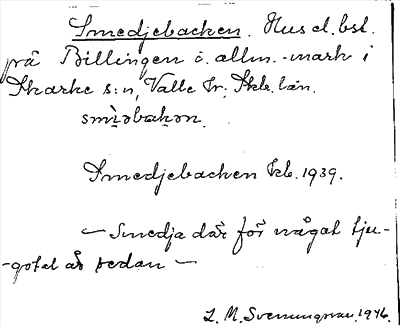 Smedjebacken. Hus el. bst.
på Billingen å allm.-mark i
Skarke s:n, Valle hr, Skb. län.
smìəbakən
Smedjebacken kb. 1939.
— Smedja där för något tju-
-gotal år sedan —
L. M. Svenungsson, 1946.